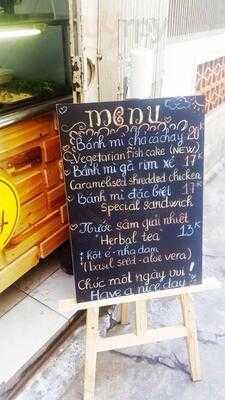 menu
Bánh mì chả cá chay 20k
Vegetarian fish cake (NEW)
Bánh mì gà rim xé 17k
Caramelised shredded chicken
Bánh mì đặc biệt 17k
Special sandwich
Nước sâm giải nhiệt
"Herbal tea" 13k
(hột é - nha đam
(basil seed - aloe vera)
Chúc một ngày vui!
Have a nice day